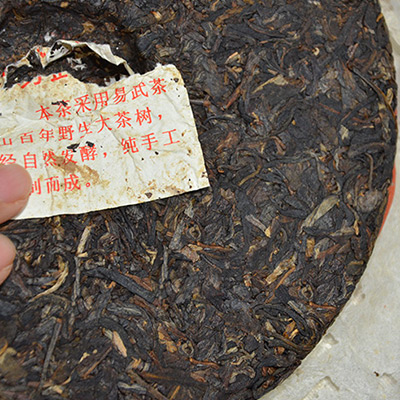 本茶采用易武茶
山百年野生大茶树，
经自然发酵，纯手工
制而成。